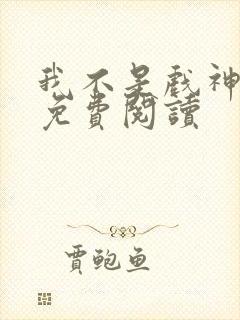 我不是戏神
免費閱讀
賈鲍鱼